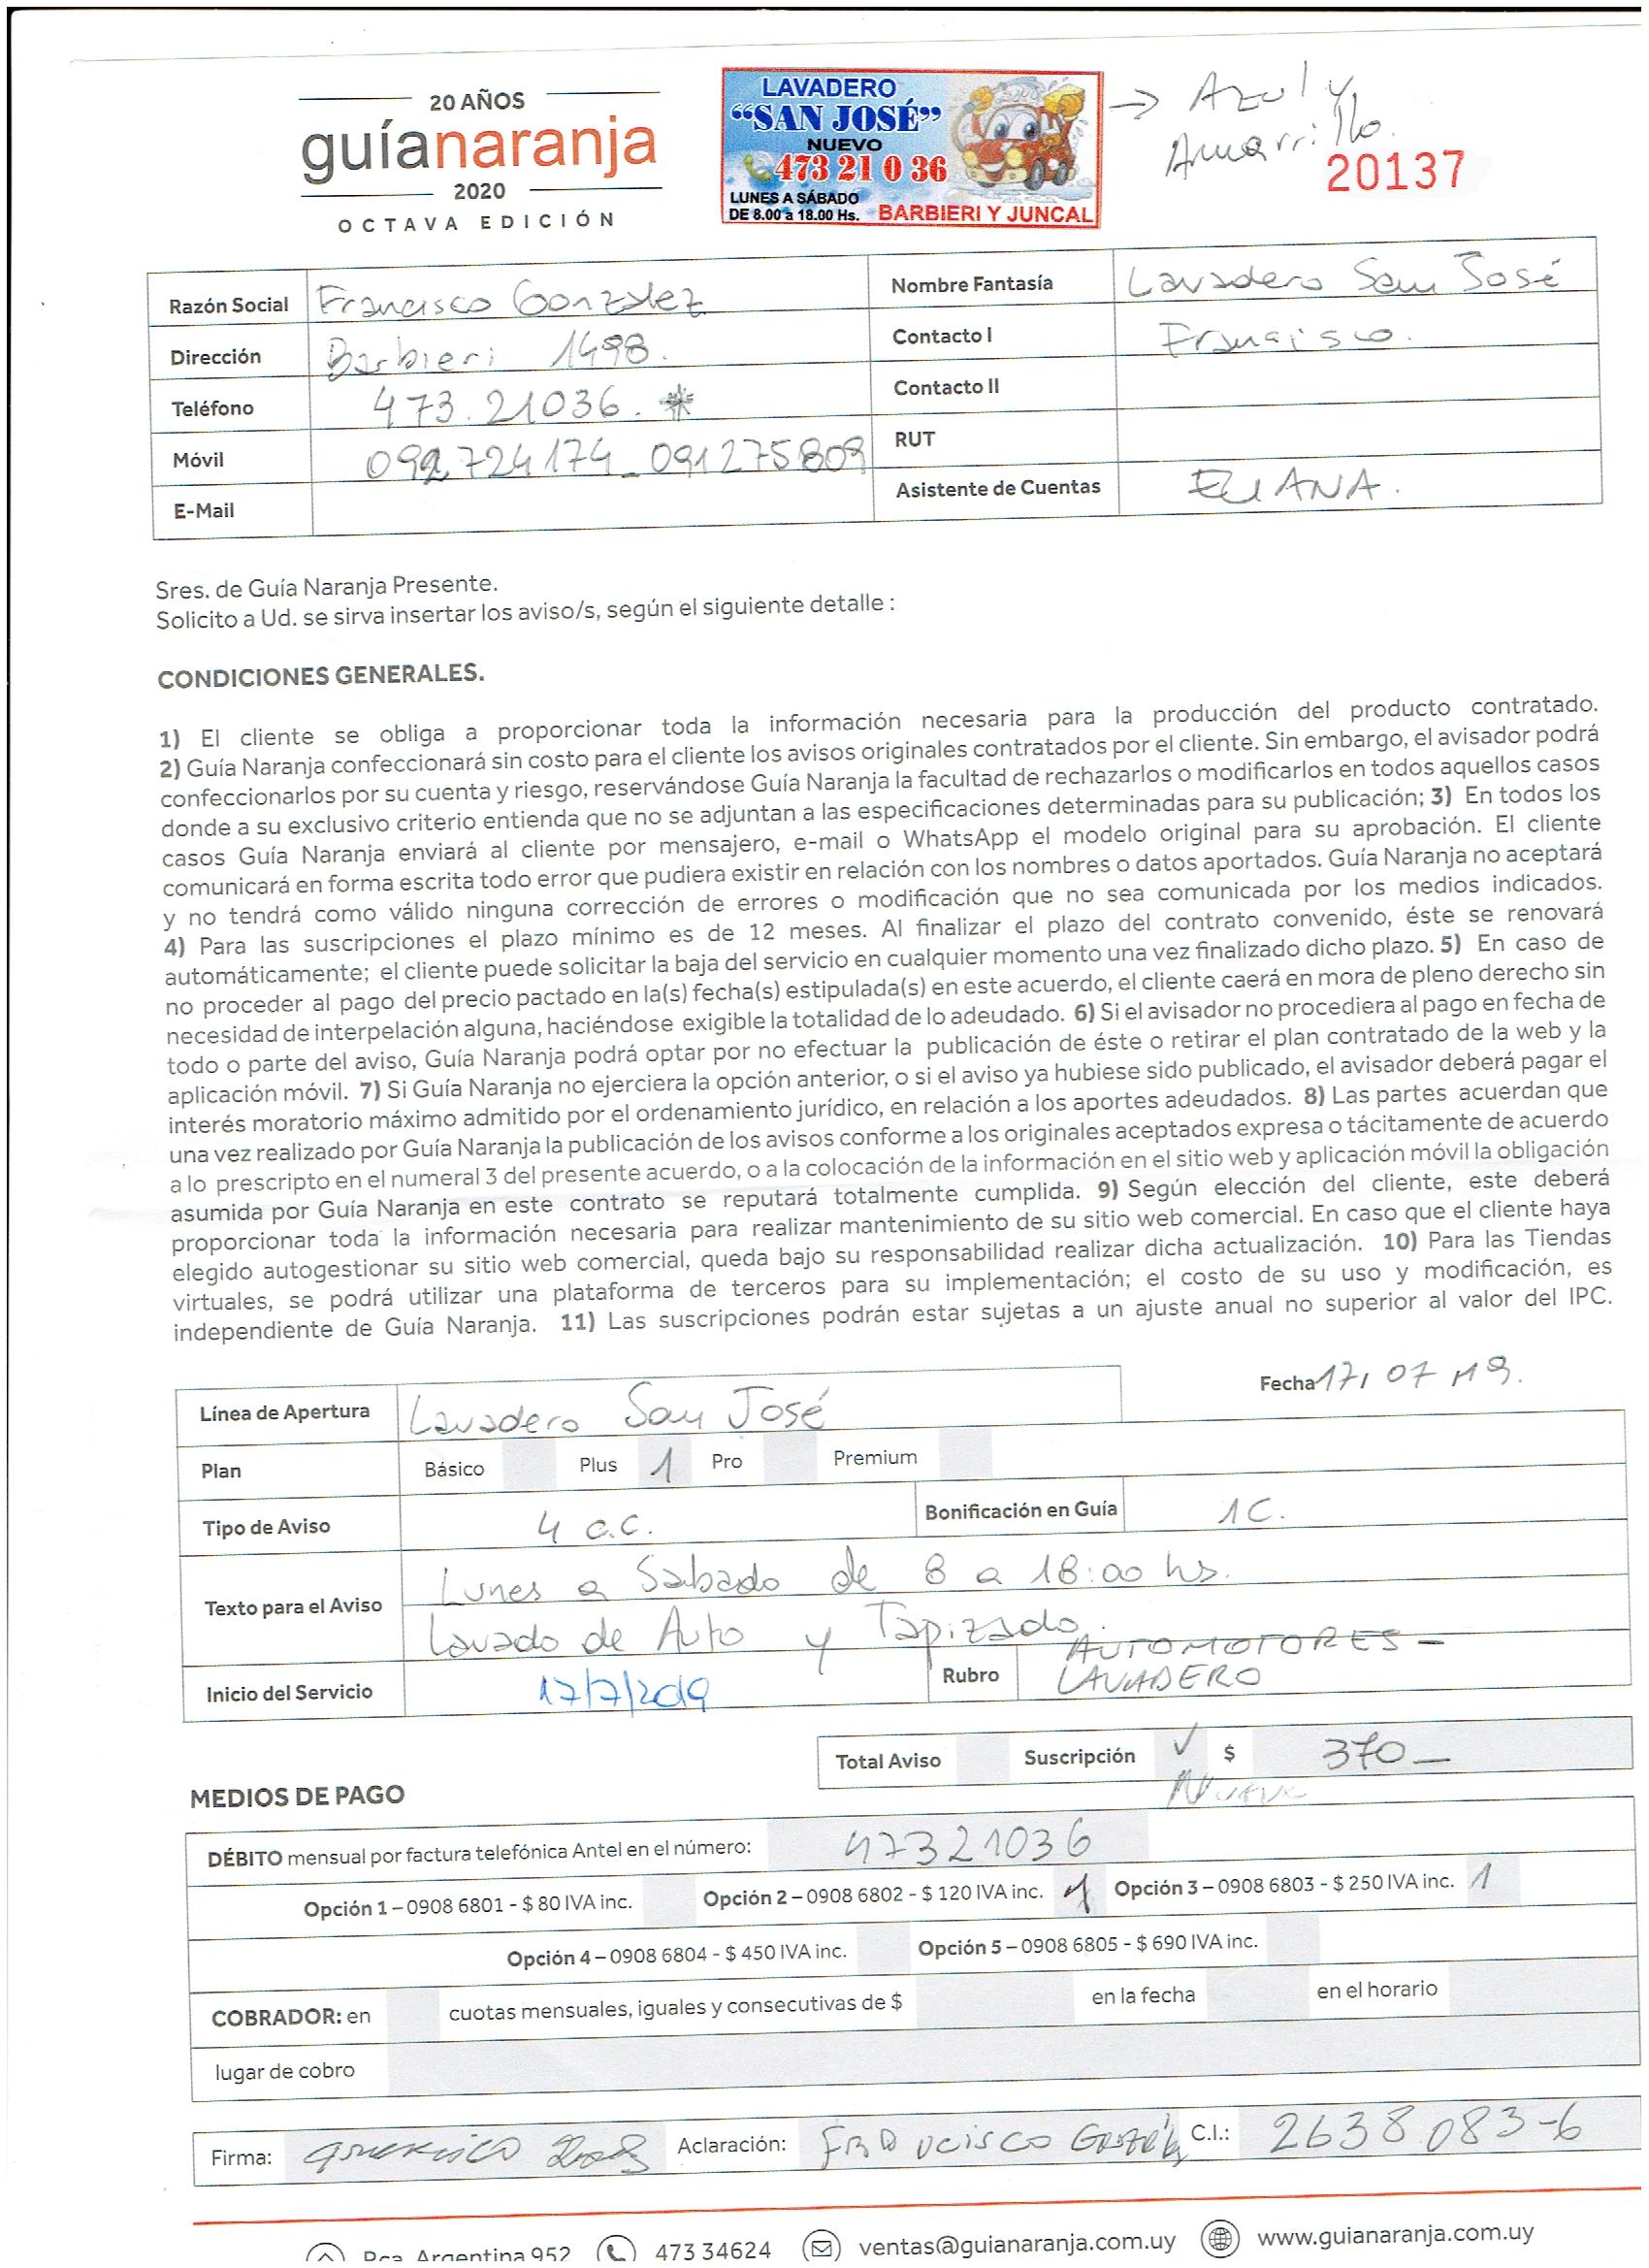 20 AÑOS
guíanaranja
2020
OCTAVA EDICIÓN
LAVADERO
“SAN JOSÉ”
NUEVO
473 21 0 36
LUNES A SÁBADO
DE 8.00 a 18.00 Hs. BARBIERI Y JUNCAL
→ Azul y
Amarrillo.
20137
Razón Social Francisco Gonzalez
Nombre Fantasía Lavadero San José
Dirección Barbieri 1498.
Contacto I Francisco.
Teléfono 473.21036. *
Contacto II
Móvil 092724174_091275809
RUT
E-Mail
Asistente de Cuentas ELIANA.
Sres. de Guía Naranja Presente.
Solicito a Ud. se sirva insertar los aviso/s, según el siguiente detalle :
CONDICIONES GENERALES.
1) El cliente se obliga a proporcionar toda la información necesaria para la producción del producto contratado.
2) Guía Naranja confeccionará sin costo para el cliente los avisos originales contratados por el cliente. Sin embargo, el avisador podrá
confeccionarlos por su cuenta y riesgo, reservándose Guía Naranja la facultad de rechazarlos o modificarlos en todos aquellos casos
donde a su exclusivo criterio entienda que no se adjuntan a las especificaciones determinadas para su publicación; 3) En todos los
casos Guía Naranja enviará al cliente por mensajero, e-mail o WhatsApp el modelo original para su aprobación. El cliente
comunicará en forma escrita todo error que pudiera existir en relación con los nombres o datos aportados. Guía Naranja no aceptará
y no tendrá como válido ninguna corrección de errores o modificación que no sea comunicada por los medios indicados.
4) Para las suscripciones el plazo mínimo es de 12 meses. Al finalizar el plazo del contrato convenido, éste se renovará
automáticamente; el cliente puede solicitar la baja del servicio en cualquier momento una vez finalizado dicho plazo. 5) En caso de
no proceder al pago del precio pactado en la(s) fecha(s) estipulada(s) en este acuerdo, el cliente caerá en mora de pleno derecho sin
necesidad de interpelación alguna, haciéndose exigible la totalidad de lo adeudado. 6) Si el avisador no procediera al pago en fecha de
todo o parte del aviso, Guía Naranja podrá optar por no efectuar la publicación de éste o retirar el plan contratado de la web y la
aplicación móvil. 7) Si Guía Naranja no ejerciera la opción anterior, o si el aviso ya hubiese sido publicado, el avisador deberá pagar el
interés moratorio máximo admitido por el ordenamiento jurídico, en relación a los aportes adeudados. 8) Las partes acuerdan que
una vez realizado por Guía Naranja la publicación de los avisos conforme a los originales aceptados expresa o tácitamente de acuerdo
a lo prescripto en el numeral 3 del presente acuerdo, o a la colocación de la información en el sitio web y aplicación móvil la obligación
asumida por Guía Naranja en este contrato se reputará totalmente cumplida. 9) Según elección del cliente, este deberá
proporcionar toda la información necesaria para realizar mantenimiento de su sitio web comercial. En caso que el cliente haya
elegido autogestionar su sitio web comercial, queda bajo su responsabilidad realizar dicha actualización. 10) Para las Tiendas
virtuales, se podrá utilizar una plataforma de terceros para su implementación; el costo de su uso y modificación, es
independiente de Guía Naranja. 11) Las suscripciones podrán estar sujetas a un ajuste anual no superior al valor del IPC.
Fecha 17, 07 19.
Línea de Apertura Lavadero San José
Plan Básico Plus 1 Pro Premium
Tipo de Aviso 4 c.c. Bonificación en Guía 1C.
Texto para el Aviso Lunes a Sabado de 8 a 18:00 hs.
Lavado de Auto y Tapizado.
Inicio del Servicio 17/7/2019 Rubro AUTOMOTORES -
LAVADERO
Total Aviso Suscripción ✓ $ 370_
MEDIOS DE PAGO
DÉBITO mensual por factura telefónica Antel en el número: 47321036
Opción 1 – 0908 6801 - $ 80 IVA inc. Opción 2 – 0908 6802 - $ 120 IVA inc. 1 Opción 3 – 0908 6803 - $ 250 IVA inc. 1
Opción 4 – 0908 6804 - $ 450 IVA inc. Opción 5 – 0908 6805 - $ 690 IVA inc.
COBRADOR: en cuotas mensuales, iguales y consecutivas de $ en la fecha en el horario
lugar de cobro
Firma: Aclaración: C.I.: 2638083-6
Pca. Argentina 952 473 34624 ventas@guianaranja.com.uy www.guianaranja.com.uy